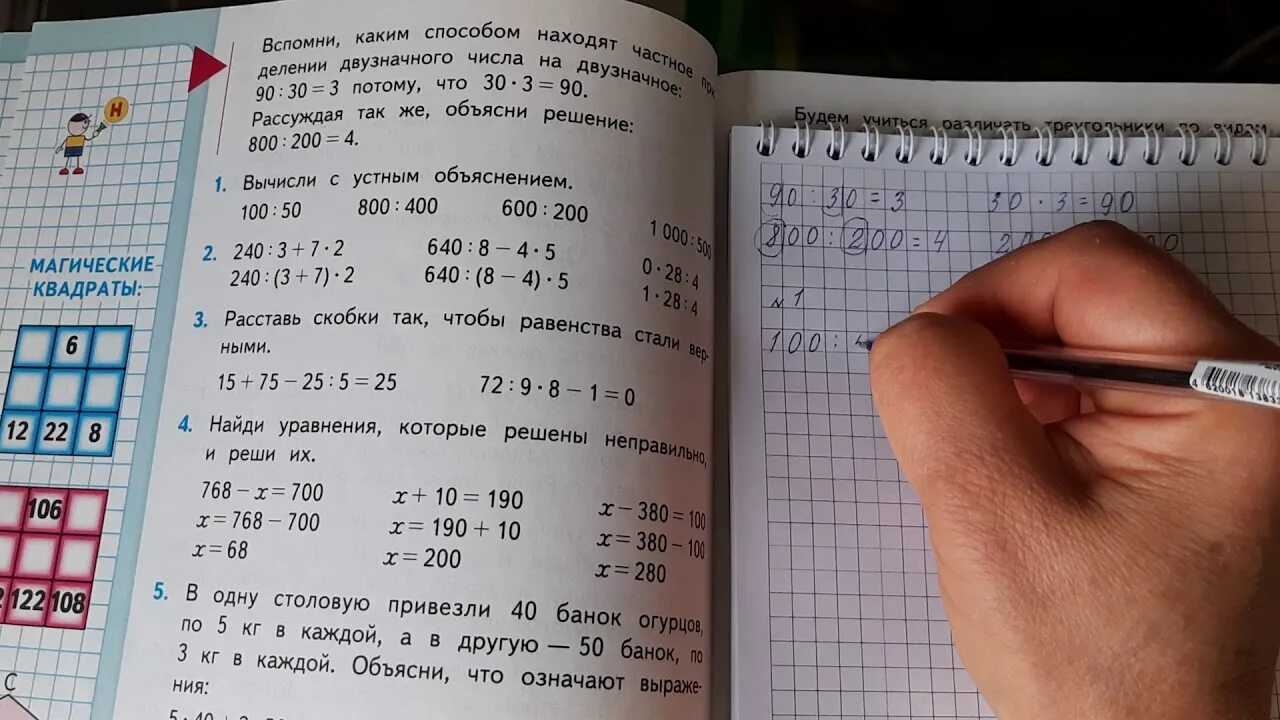 Н
МАГИЧЕСКИЕ
КВАДРАТЫ:
6
12 22 8
106
122 108
С
Вспомни, каким способом находят частное при
делении двузначного числа на двузначное:
90 : 30 = 3 потому, что 30 · 3 = 90.
Рассуждая так же, объясни решение:
800 : 200 = 4.
1. Вычисли с устным объяснением.
100 : 50 800 : 400 600 : 200 1 000 : 500
2. 240 : 3 + 7 · 2 640 : 8 − 4 · 5 0 · 28 : 4
240 : (3 + 7) · 2 640 : (8 − 4) · 5 1 · 28 : 4
3. Расставь скобки так, чтобы равенства стали вер-
ными.
15 + 75 − 25 : 5 = 25 72 : 9 · 8 − 1 = 0
4. Найди уравнения, которые решены неправильно,
и реши их.
768 − x = 700 x + 10 = 190 x − 380 = 100
x = 768 − 700 x = 190 + 10 x = 380 − 100
x = 68 x = 200 x = 280
5. В одну столовую привезли 40 банок огурцов,
по 5 кг в каждой, а в другую — 50 банок, по
3 кг в каждой. Объясни, что означают выраже-
ния:
Будем учиться различать треугольники по видам
90 : 30 = 3 30 · 3 = 90
800 : 200 = 4
№ 1
100 :